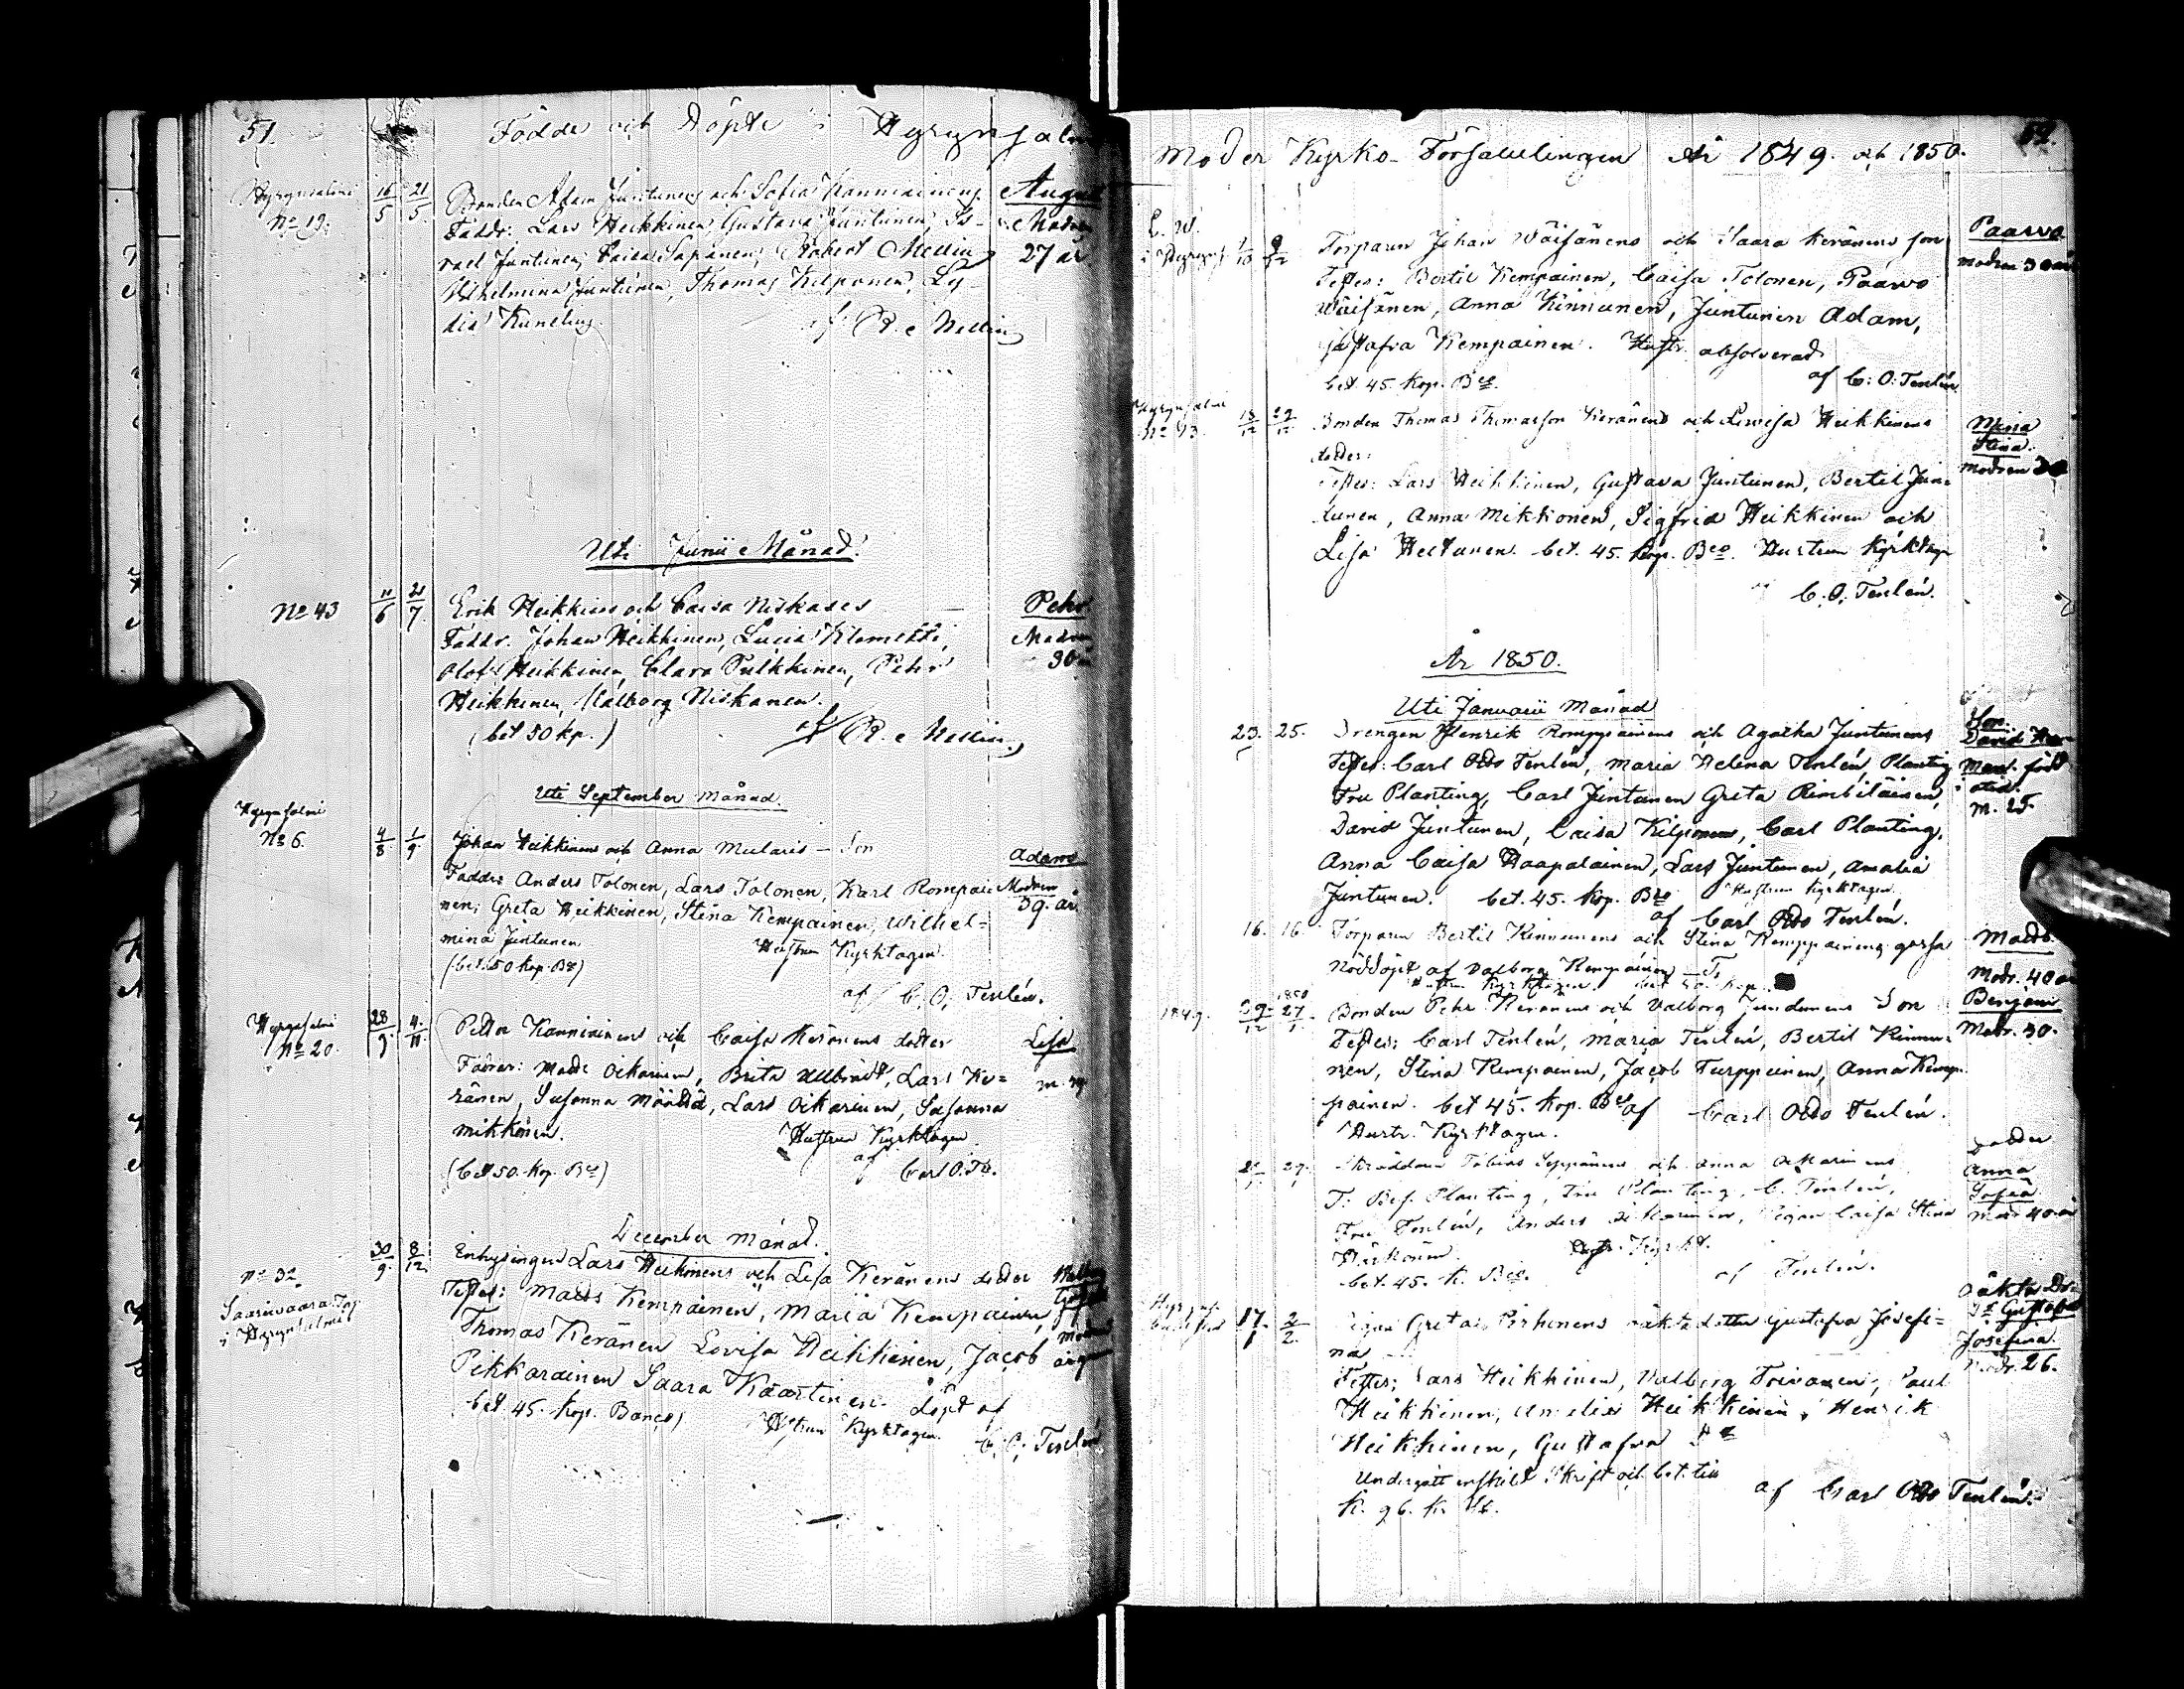 51.
Födde och Döpte i Hyrynsalmi
Hyrynsalmi
No 19.
16/5 21/5
Bonden Adam Juntunens och Sofia Kanniainens
August
Faddr: Lars Heikkinen, Gustava Juntunen, Is-
Modren
rael Juntunen, Caisa Sapanen, Robert Mellin
27 år
Wilhelmina Juntunen, Thomas Kilponen, Ly-
dia
af R. Mellin
Uti Junii Månad.
No 43
11/6 21/7
Erik Heikkines och Caisa Niskases
Pehr
Faddr. Johan Heikkinen, Lucia Klemetti,
Modren
Olof Heikkinen, Clara Pulkkinen, Pehr
30
Heikkinen, Walborg Niskanen.
(bet 50 kp.)
af R. Mellin
Uti September Månad.
Hyrynsalmi
No 6.
4/8 1/9
Johan Heikkinens och Anna Mularis - Son
Adam
Faddr: Anders Tolonen, Lars Tolonen, Karl Rompai-
Modren
nen, Greta Heikkinen, Stina Kempainen, Wilhel=
39. år
mina Juntunen
Hustrun Kyrktagen
(bet. 50 kop. Bco)
af C. O. Tenlén.
Hyrynsalmi
No 20.
28/9 4/11
Petter Kanniainens och Caisa Keränens dotter
Lisa
Fadrar: Matts Oikarinen, Brita Ullbrandt, Lars Ke=
ränen, Susanna Määttä, Lars Oikarinen, Susanna
Mikkonen.
Hustrun Kyrktagen
(bet 50. kop. Bco)
af Carl O. Tn.
December Månad.
No 32
Saarivaara Torp
i Hyrynsalmi
30/9 8/12
Enhysingen Lars Heikkinens och Lisa Keränens dotter
Testes: Matts Kempainen, Maria Kempainen,
Thomas Keränen Lovisa Heikkinen, Jacob
Pikkarainen Saara Kaartinen. Döpt af
bet. 45. kop. Banco)
Hustrun Kyrktagen.
C. O. Tenlén
52.
Moder Kyrko-Församlingen År 1849. och 1850.
Torparen Johan Wäisänens och Saara Keränens son
Paavo
modren 30 år
Testes: Bertil Kempainen, Caisa Tolonen, Paavo
Wäisänen, Anna Kinnunen, Juntunen Adam,
Gustafva Kempainen. Hustr. absolverad
bet 45. kop. Bco.
af C: O: Tenlén
Hyrynsalmi
No 43.
Bonden Thomas Thomasson Keränens och Lovisa Heikkinens
Mina
Stina
dotter:
modren
Testes: Lars Heikkinen, Gustava Juntunen, Bertil Jun-
tunen, Anna Mikkonen, Sigfrid Heikkinen och
Lisa Heitunen. bet. 45. kop. Bco. Hustrun Kyrktagn
C. O. Tenlén.
År 1850.
Uti Januarii Månad
23. 25.
Drengen Henrik Romppainens och Agatha Juntunens
Son
David
Testes: Carl Otto Tenlén, Maria Helena Tenlén, Planting
Fru Planting, Carl Juntunen Greta Rimbiläinen,
m. 25
David Juntunen, Caisa Kilponen, Carl Planting,
Anna Caisa Haapalainen, Lars Juntunen, Amalia
Juntunen. bet. 45. kop. Bco Hustrun kyrktagen
af Carl Otto Tenlén.
16. 16.
Torparen Bertil Kinnunens och Stina Kemppainens gosse
Matts
Nöddöpt af Valborg Kempainen
Modr. 40 år
1849.
29/12 1850 27/1
Bonden Pehr Keränens och Valborg Juntunens Son
Benjam
Modr. 30.
Testes: Carl Tenlén, Maria Tenlén, Bertil Kinnu-
nen, Stina Kempainen, Jacob Turppeinen, Anna Kemp-
painen. bet 45. kop. Bco af Carl Otto Tenlén.
Hustr. Kyrktagen.
Skräddaren Tobias Seppänens och Anna Oikarinens
dotter
Anna
Sofia
Modr 40 år
T: Bef. Planting, Fru Planting, C. Tenlén,
Fru Tenlén, Anders Oikarinen, Pigan Caisa Stina
Härkönen. Hustr. Kyrkt.
bet. 45. K. Bco.
af Tenlén.
17/1 2/2
Pigan Greta Pirhonens oäkta dotter Gustafva Josefi=
Oäkta Do-
Gustafva
Josefina.
Modr. 26.
na
Testes: Lars Heikkinen, Valborg Toivanen, Paul
Heikkinen, Amalia Heikkinen, Henrik
Heikkinen, Gustafva
Undergått enskilt skrift och bet. till
K. 96. K. Sr.
af Carl Otto Tenlén.